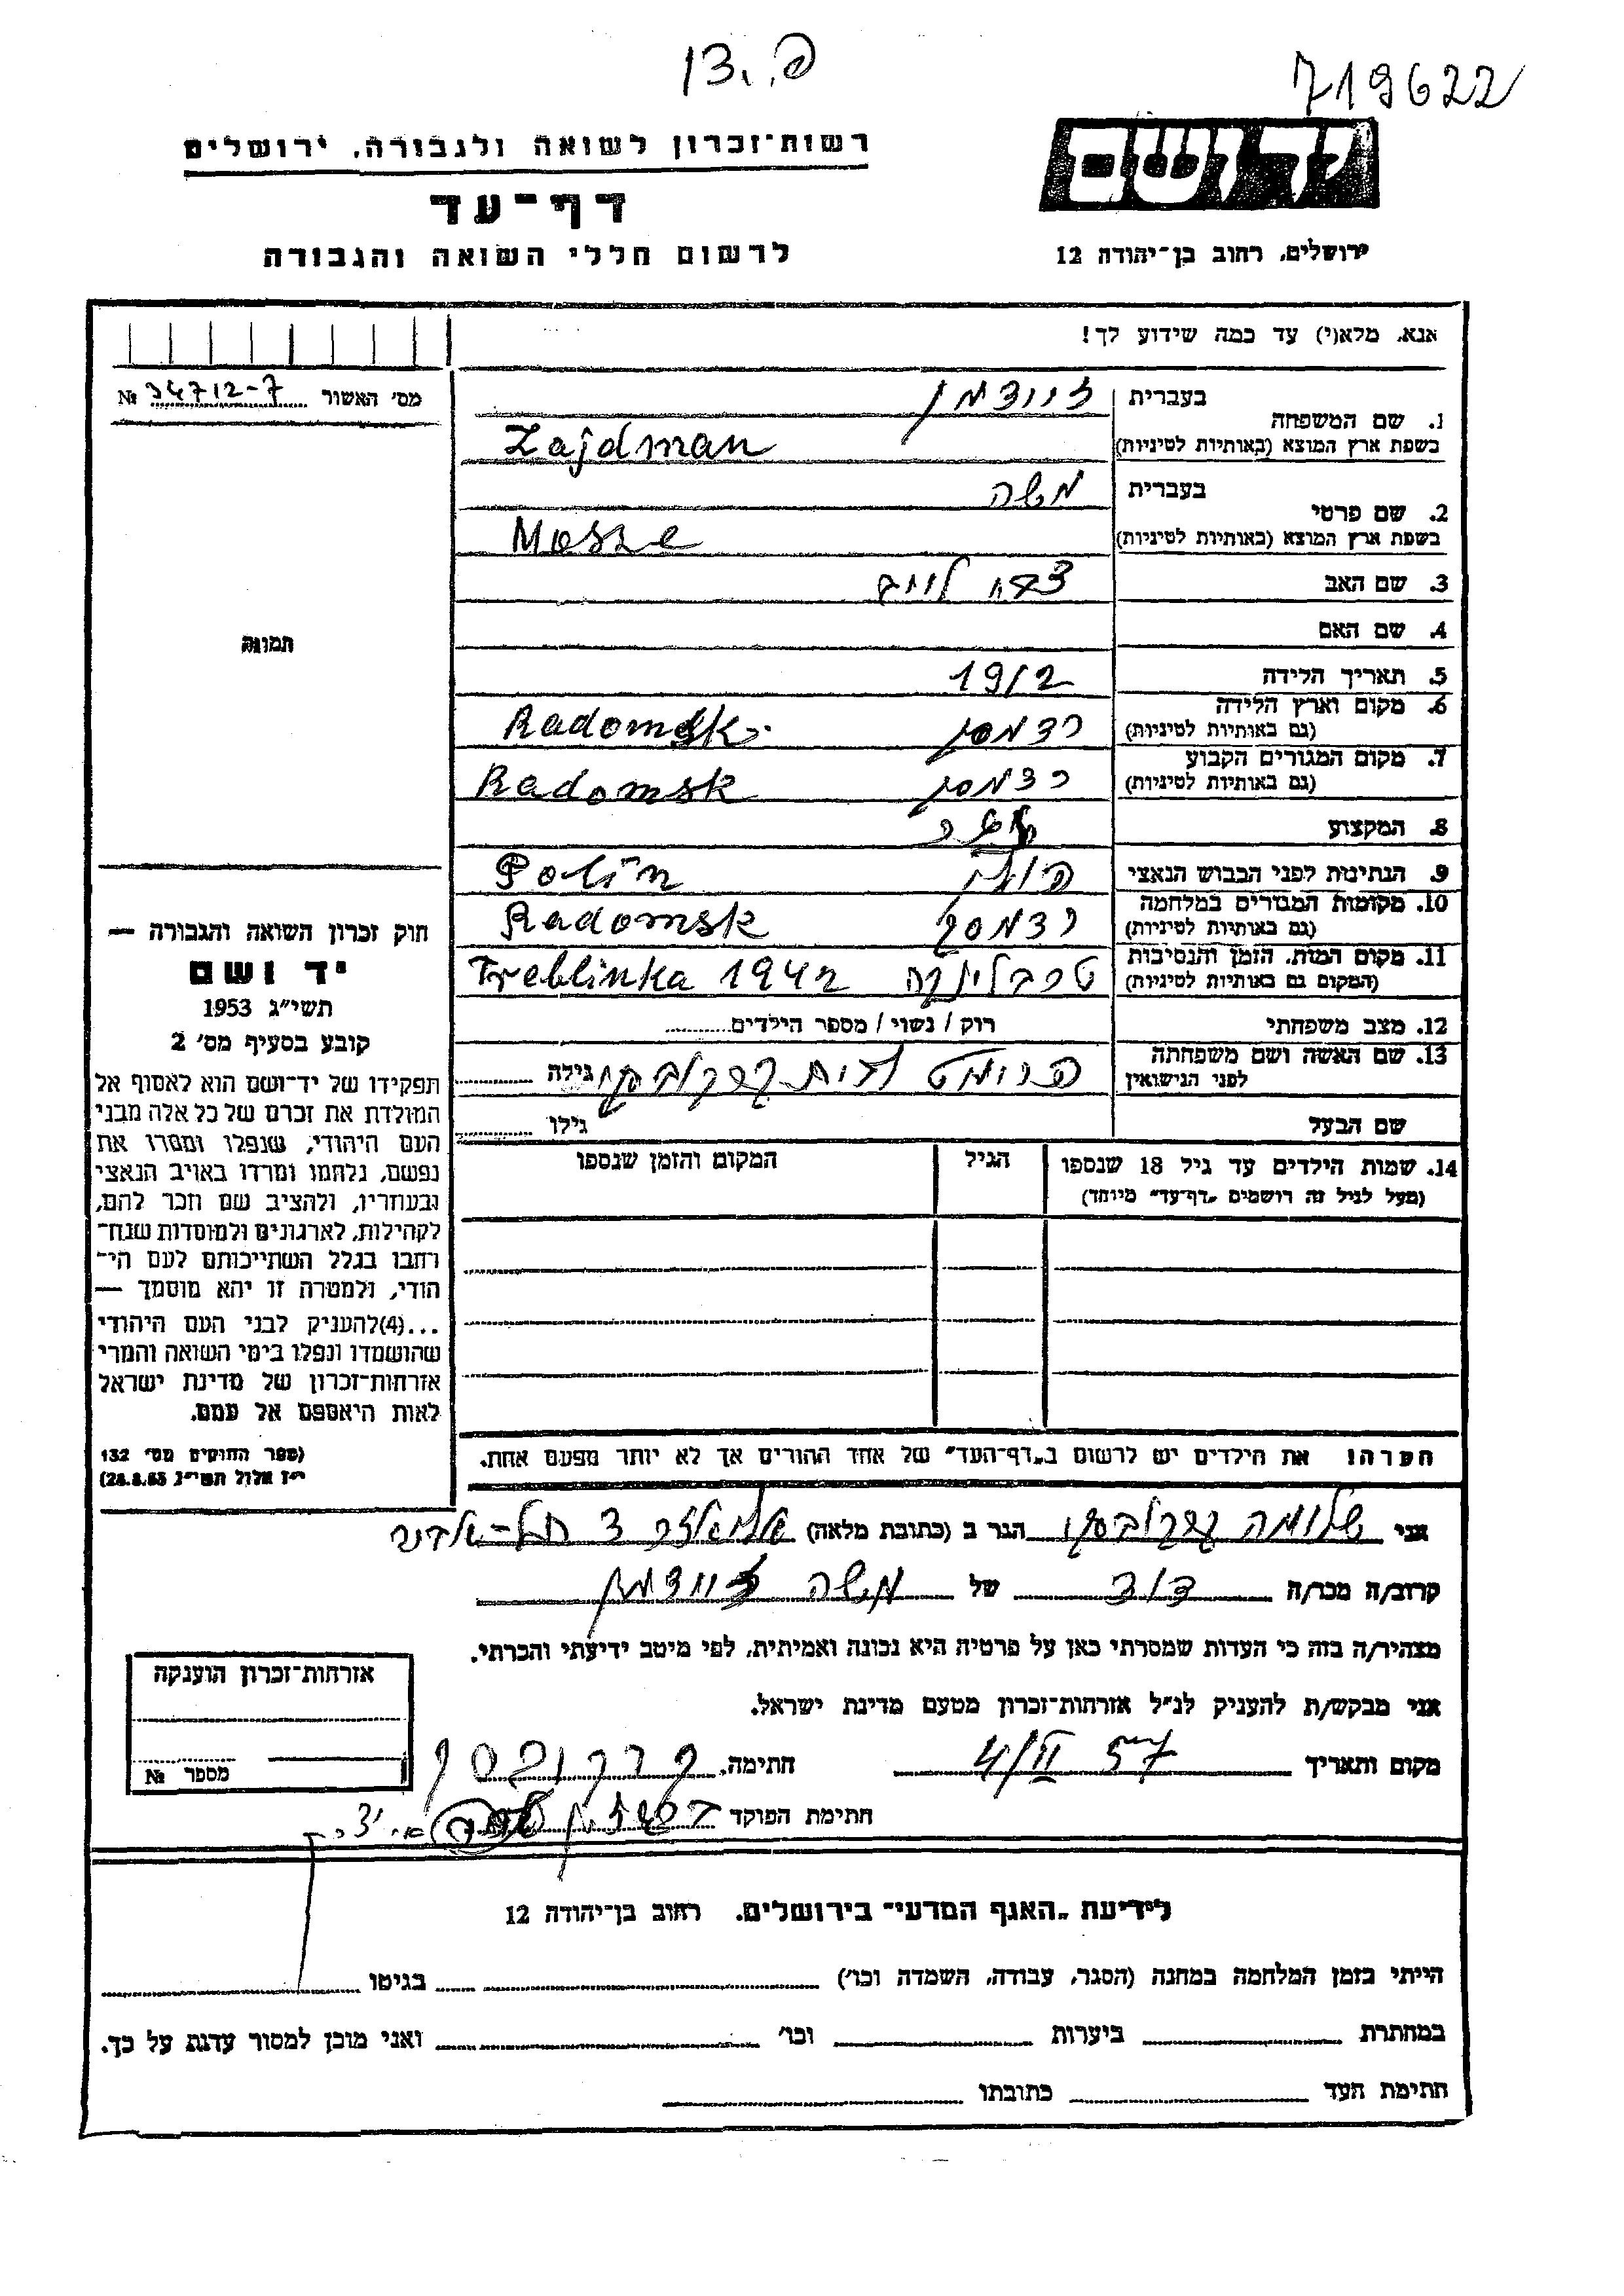 719622
רשות־זכרון לשואה ולגבורה, ירושלים
יד ושם
דף־עד
לרשום חללי השואה והגבורה
ירושלים, רחוב בן־יהודה 12
אנא, מלא(י) עד כמה שידוע לך!
מס׳ האשור № 34712-7
1. שם המשפחה
בעברית זיידמן
בשפת ארץ המוצא (באותיות לטיניות) Zajdman
2. שם פרטי
בעברית משה
בשפת ארץ המוצא (באותיות לטיניות) Mosze
3. שם האב
4. שם האם
תמונה
5. תאריך הלידה 1912
6. מקום וארץ הלידה
(גם באותיות לטיניות) רדמסק Radomsk
7. מקום המגורים הקבוע
(גם באותיות לטיניות) רדמסק Radomsk
8. המקצוע
9. הנתינות לפני הכבוש הנאצי פולין Polin
10. מקומות המגורים במלחמה
(גם באותיות לטיניות) רדמסק Radomsk
11. מקום המות, הזמן והנסיבות
(המקום גם באותיות לטיניות) טרבלינקה Treblinka 1942
12. מצב משפחתי רוק / נשוי / מספר הילדים
13. שם האשה ושם משפחתה
לפני הנישואין פרומט גילה
שם הבעל גילו
14. שמות הילדים עד גיל 18 שנספו
(מעל לגיל זה רושמים „דף־עד״ מיוחד)
הגיל
המקום והזמן שנספו
חוק זכרון השואה והגבורה —
יד ושם
תשי״ג 1953
קובע בסעיף מס׳ 2
תפקידו של יד־ושם הוא לאסוף אל
המולדת את זכרם של כל אלה מבני
העם היהודי, שנפלו ומסרו את
נפשם, נלחמו ומרדו באויב הנאצי
ובעוזריו, ולהציב שם וזכר להם,
לקהילות, לארגונים ולמוסדות שנח־
רבו בגלל השתייכותם לעם הי־
הודי, ולמטרה זו יהא מוסמך —
...(4)להעניק לבני העם היהודי
שהושמדו ונפלו בימי השואה והמרי
אזרחות־זכרון של מדינת ישראל
לאות היאספם אל עמם.
(ספר החוקים מס׳ 132
י״ז אלול תשי״ג 28.8.53)
הערה! את הילדים יש לרשום ב„דף־העד״ של אחד ההורים אך לא יותר מפעם אחת.
אני שלומה הגר ב (כתובת מלאה)
קרוב/ה מכר/ה דוד של משה זיידמן
מצהיר/ה בזה כי העדות שמסרתי כאן על פרטיה היא נכונה ואמיתית, לפי מיטב ידיעתי והכרתי.
אני מבקש/ת להעניק לנ״ל אזרחות־זכרון מטעם מדינת ישראל.
מקום ותאריך 4/II 57 חתימה
חתימת הפוקד
אזרחות־זכרון הוענקה
מספר №
לידיעת „האגף המדעי״ בירושלים, רחוב בן־יהודה 12
הייתי בזמן המלחמה במחנה (הסגר, עבודה, השמדה וכו׳) בגיטו
במחתרת ביערות וכו׳ ואני מוכן למסור עדות על כך.
חתימת העד כתובתו